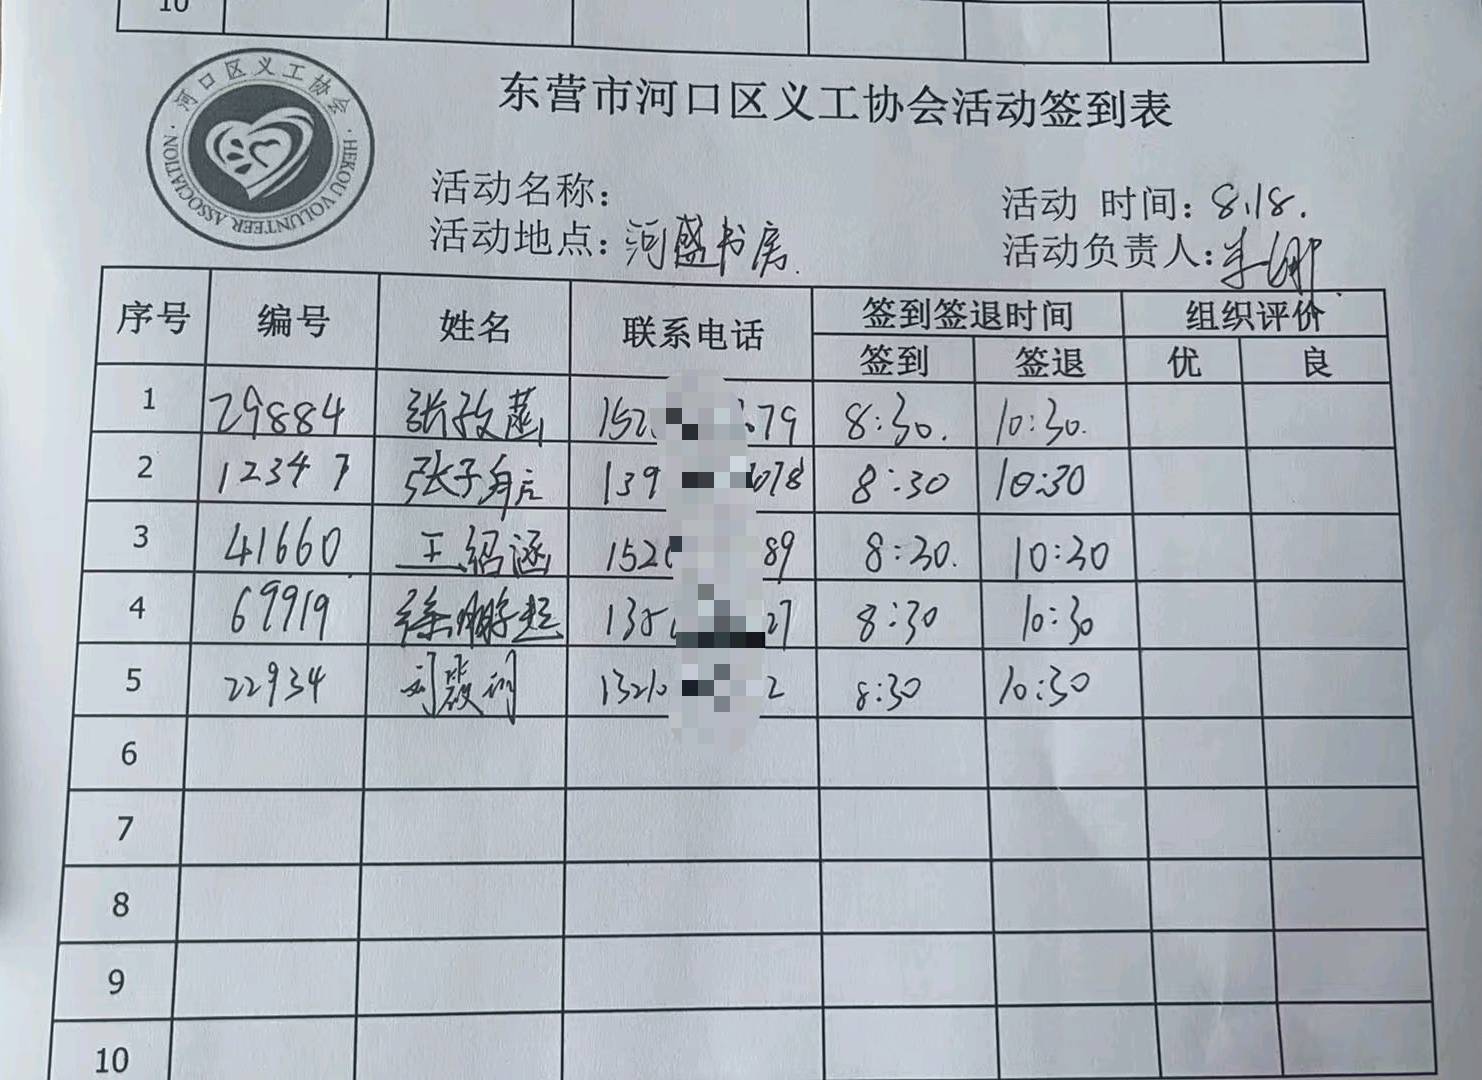 10
河口区义工协会
HEKOU VOLUNTEER ASSOCIATION
东营市河口区义工协会活动签到表
活动名称：
活动时间：8.18.
活动地点：河盛书房.
活动负责人：
序号 编号 姓名 联系电话 签到签退时间 组织评价
签到 签退 优 良
1 29884 152 79 8:30. 10:30.
2 12347 张子 139 078 8:30 10:30
3 41660 王绍涵 152 89 8:30. 10:30
4 69919 徐 27 8:30 10:30
5 22934 刘 1320 2 8:30 10:30
6
7
8
9
10